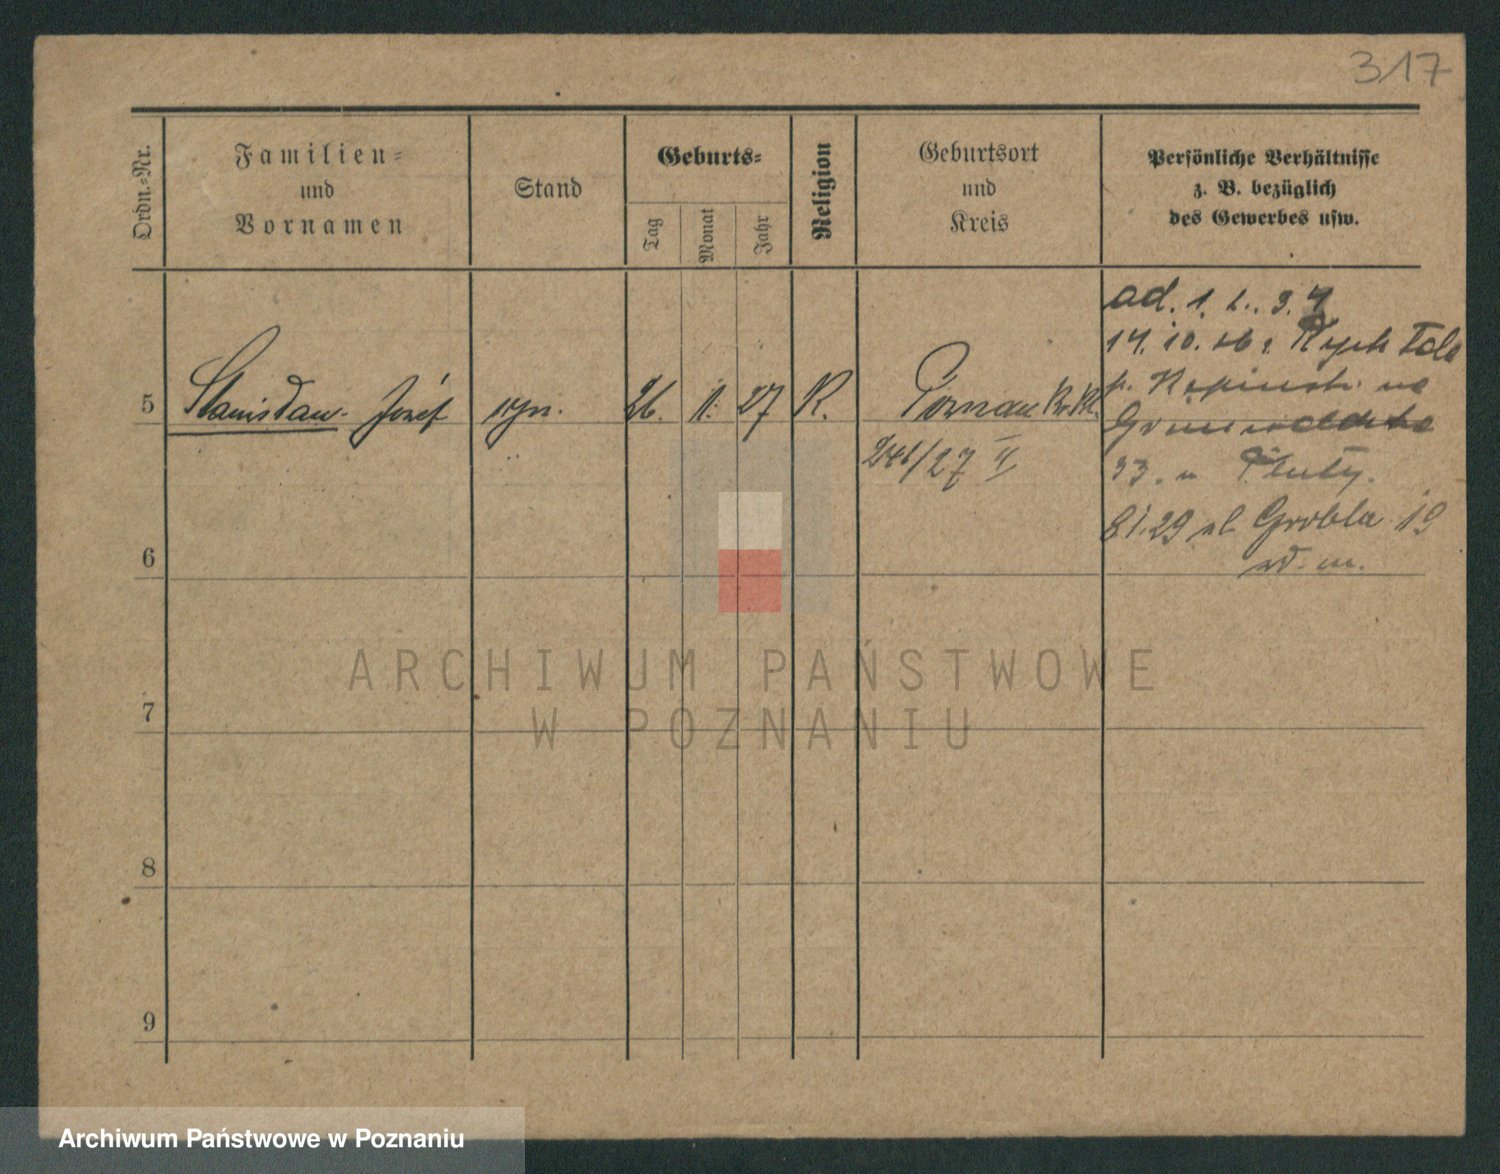 317
Ordn.-Nr.
Familien-
und
Vornamen
Stand
Geburts-
Tag
Monat
Jahr
Religion
Geburtsort
und
Kreis
Persönliche Verhältnisse
z. B. bezüglich
des Gewerbes usw.
ad. 1. 2. 3. 4
14. 10. 26 z Rycht
p. na
5 Stanisław Józef syn. 26. 1. 27 R.
33. u
241/27 II
8 1. 29 ul. Grobla 19
6
7
8
9
ARCHIWUM PAŃSTWOWE
W POZNANIU
Archiwum Państwowe w Poznaniu